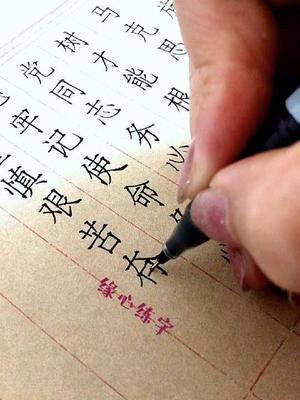 马克思
树才能根
党同志务必
牢记使命
慎艰苦
缘心练字